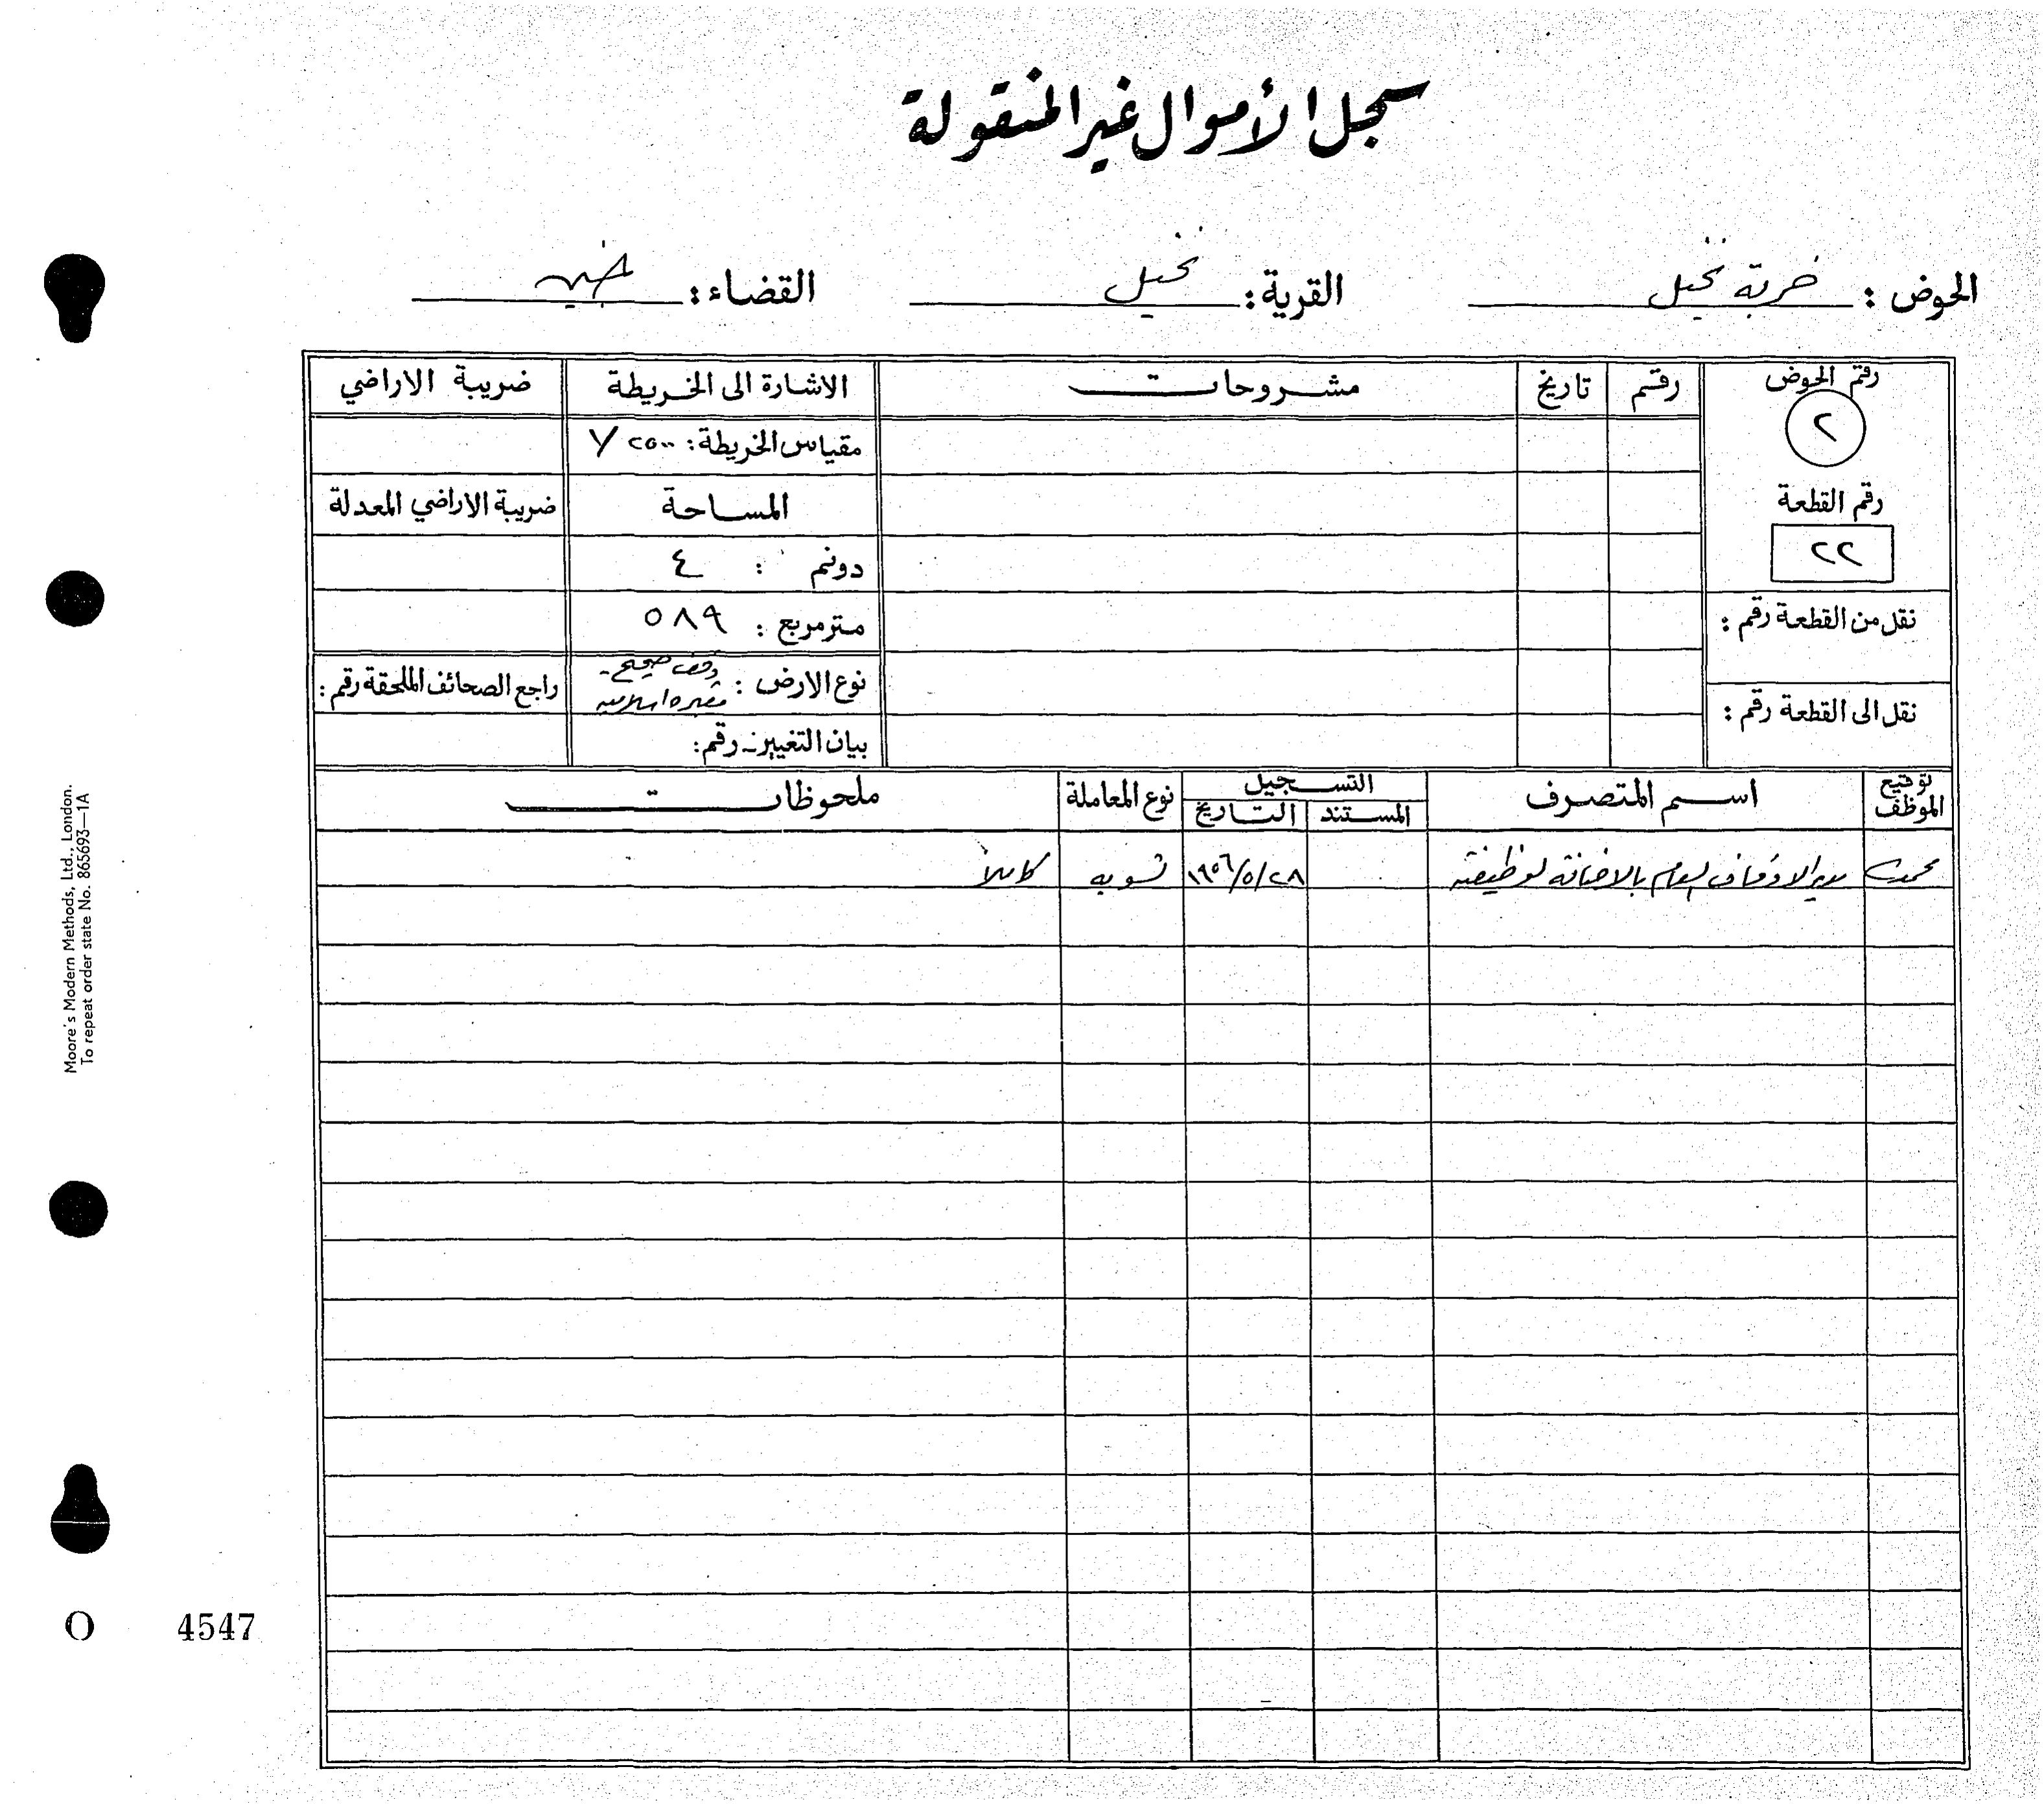 سجل الأموال غير المنقولة
الحوض : خربة نخيل القرية : نخيل القضاء :
رقم الحوض رقم تاريخ مشروحات الاشارة الى الخريطة ضريبة الاراضي
٢
مقياس الخريطة : ١/٢٥٠٠
رقم القطعة
٢٢
المساحة ضريبة الاراضي المعدلة
دونم : ٤
متر مربع : ٥٨٩
نقل من القطعة رقم :
نوع الارض : وقف صحيح -
مقبره اسلاميه
راجع الصحائف الملحقة رقم :
نقل الى القطعة رقم :
بيان التغيير رقم :
توقيع الموظف اسم المتصرف التسجيل نوع المعاملة ملحوظات
المستند التاريخ
مدير الاوقاف العام بالاضافة لوظيفته ٢٨/٥/١٩٥٦ تسويه كاملاً
Moore's Modern Methods, Ltd., London.
To repeat order state No. 865693—1A
O 4547